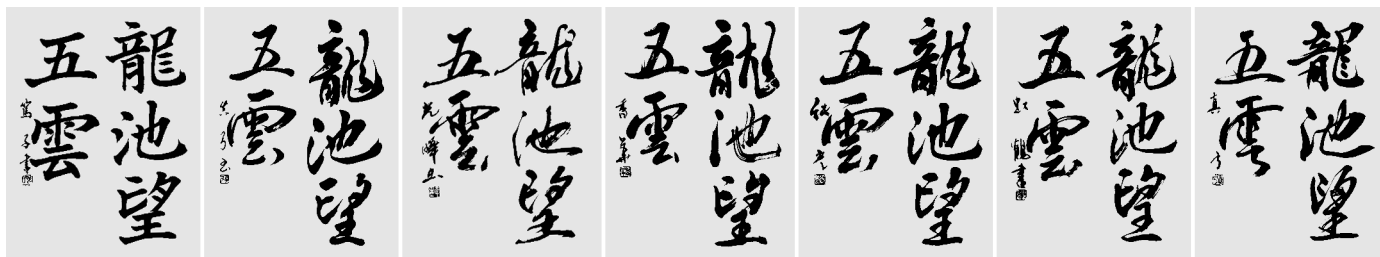 龍池望
五雲
龍池望
五雲
龍池望
五雲
龍池望
五雲
龍池望
五雲
龍池望
五雲
龍池望
五雲